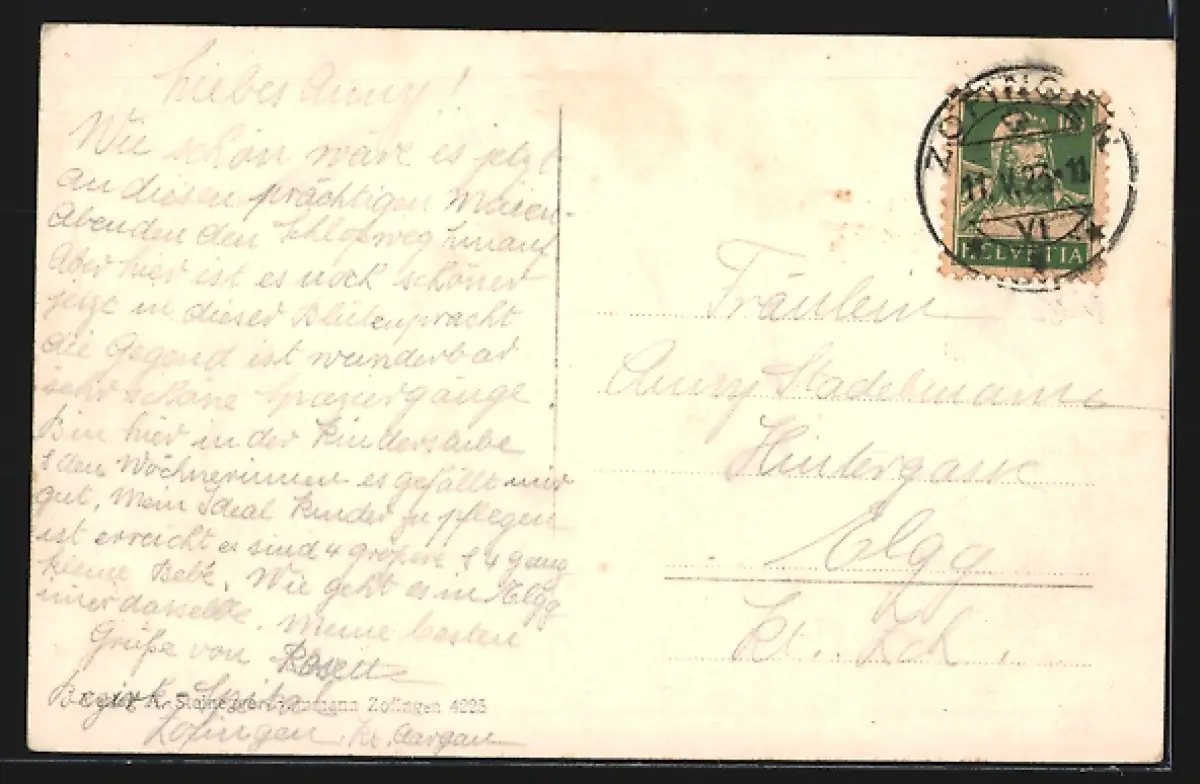 Liebes Anny!
Wie schön wäre es jetzt
an diesen prächtigen Maien-
Abenden den Schloßweg hinauf
Aber hier ist es noch schöner
jetzt in dieser Blütenpracht
die Gegend ist wunderbar
sehr schöne Spaziergänge.
Bin hier in der Kinderstube
& den Wöchnerinnen es gefällt mir
gut, mein Ideal Kinder zu pflegen
ist erreicht es sind 4 größere & 4 ganz
kleine Bebe. Wie geht es in Elgg
imer dasselbe. Meine besten
Grüße von Rosette
Bezirk Spital
Zofingen Kt. Aargau
Zofingen 4223
ZOFINGEN
11.V.23-11
VI
10
HELVETIA
Fräulein
Anny Stadelmann
Hintergasse
Elgg
Kt. Zch.